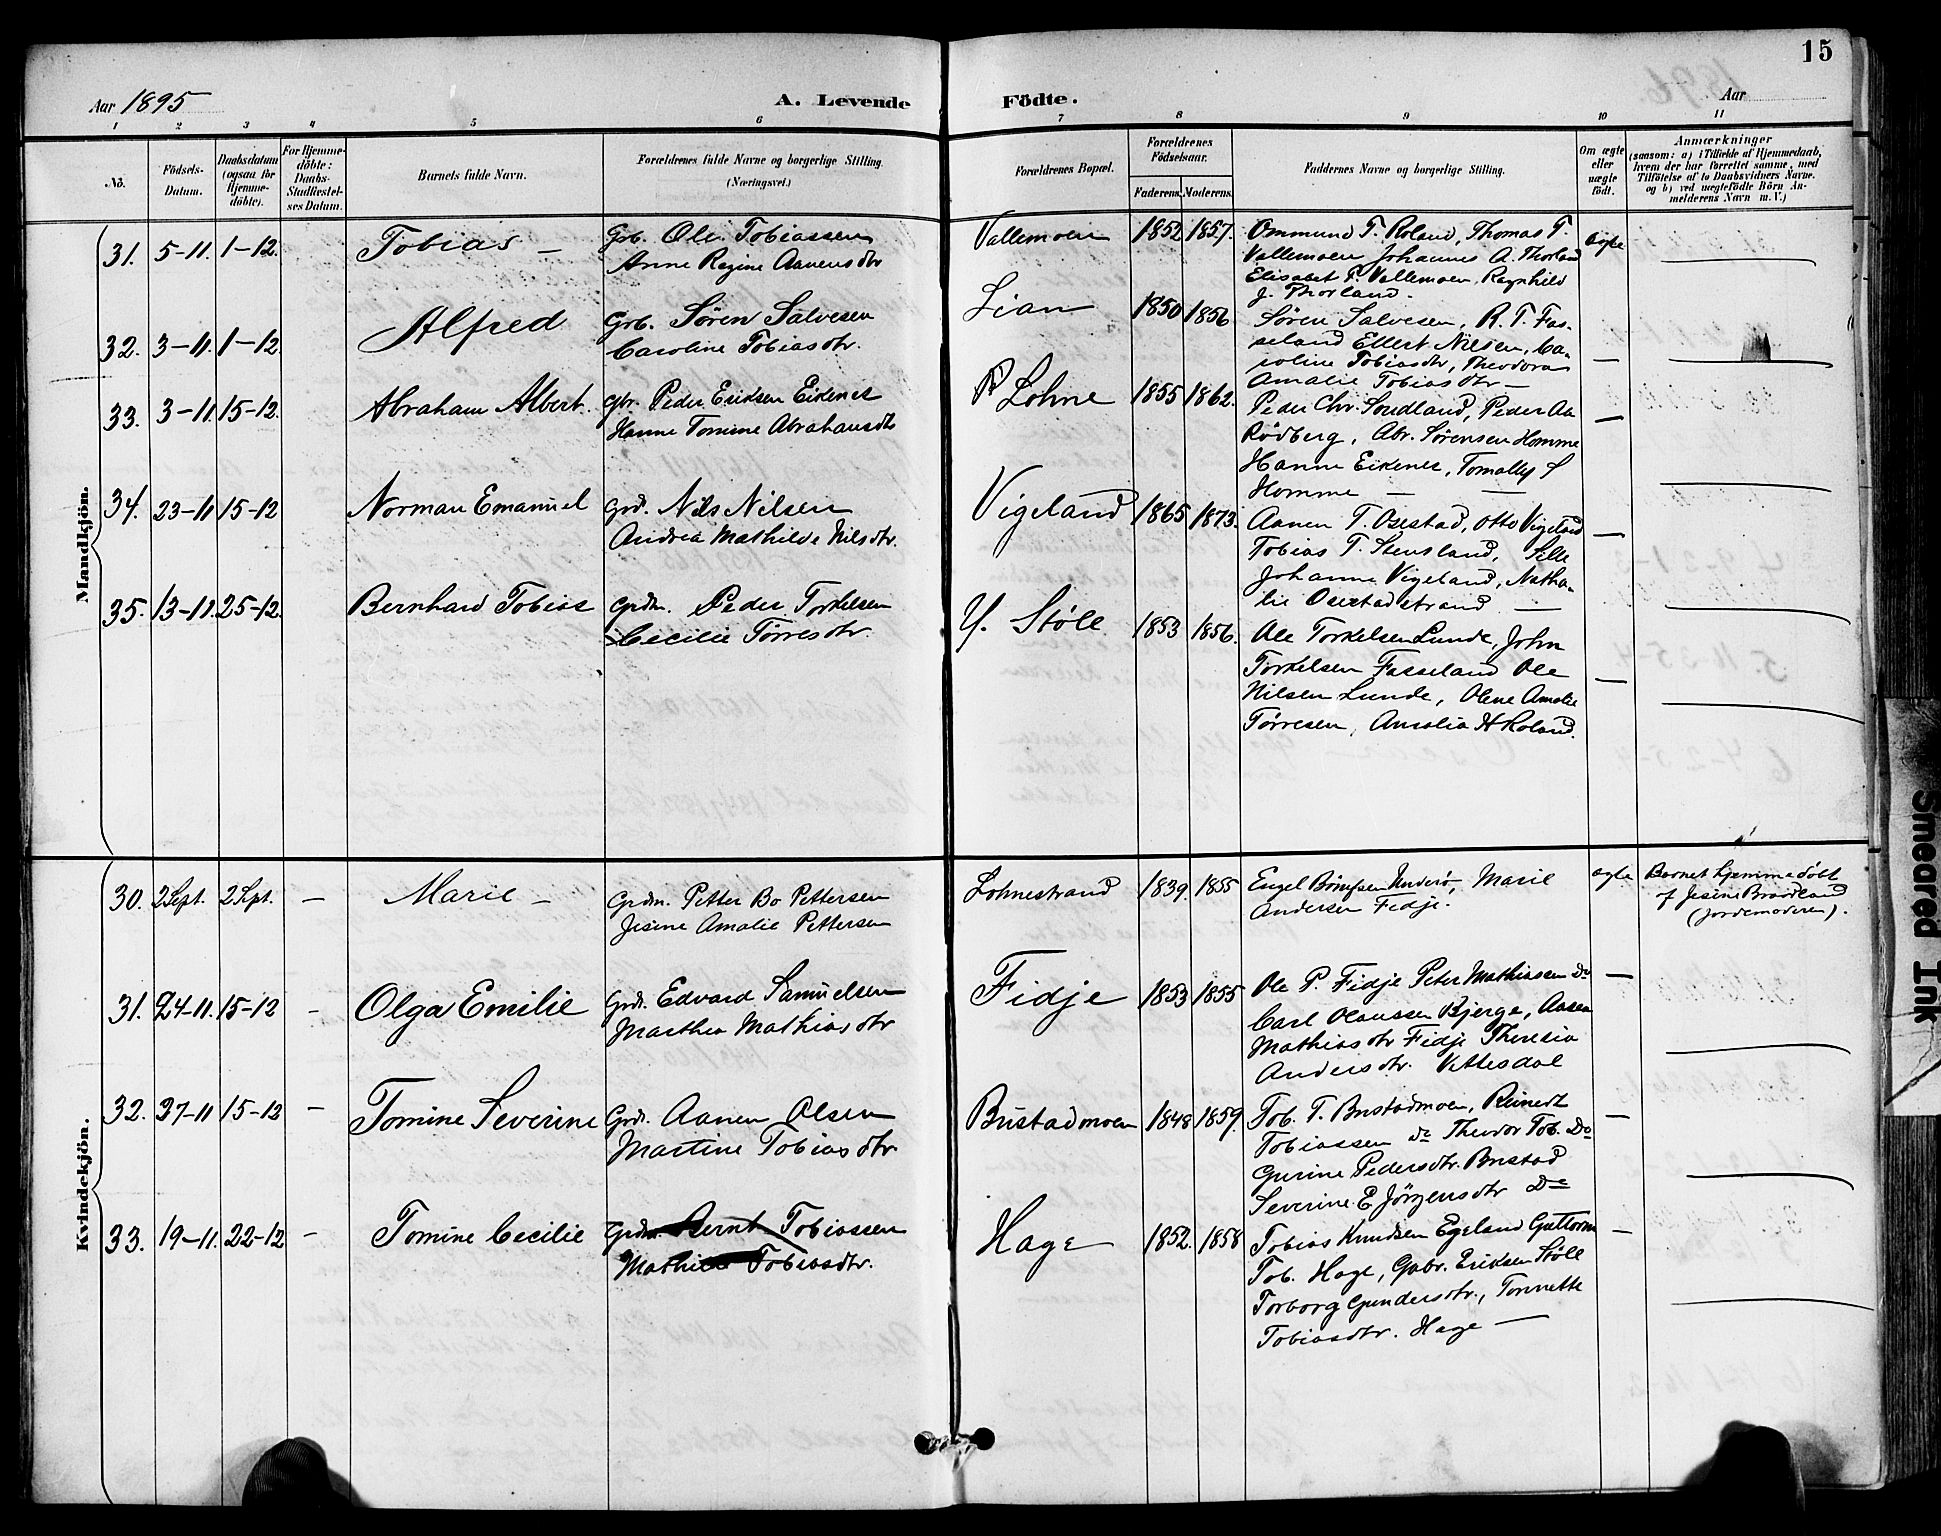 15
Aar 1895
A. Levende Födte.
Aar
1 2 3 4 5 6 7 8 9 10 11
No.
Födsels-
Datum.
Daabsdatum
(ogsaa for
Hjemme-
döbte).
For Hjemme-
döbte:
Daabs-
Stadfæstel-
ses Datum.
Barnets fulde Navn.
Forældrenes fulde Navne og borgerlige Stilling.
(Næringsvei.)
Forældrenes Bopæl.
Forældrenes
Födselsaar.
Faderens. Moderens.
Faddernes Navne og borgerlige Stilling.
Om ægte
eller
uægte
födt.
Anmærkninger
(saasom: a) i Tilfælde af Hjemmedaab,
hvem der har forrettet samme, med
Tilföielse af to Daabsvidners Navne.
og b) ved uægtefödte Börn An-
melderens Navn m. V.)
Mandkjön.
31. 5-11. 1-12. Tobias —
Grb. Ole Tobiassen
Anne Regine Aanensdtr
Vallemoen 1852 1857.
Ommund T. Roland, Thomas T
Vallemoen Johannes A. Thorland
Elisabet T. Vallemoen, Ragnhild
J. Thorland.
ægte
32. 3-11. 1-12. Alfred
Grb. Søren Salvesen
Caroline Tobiasdtr.
Lian 1850 1856
Søren Salvesen, R. T. Fas-
seland Ellert Nilsen, Ca-
roline Tobiasdtr, Theodora
Amalie Tobiasdtr —
—
33. 3-11. 15-12. Abraham Albert.
Gbr. Peder Eriksen Eikenes
Hanne Tomine Abrahamsdtr
Lohne 1855 1862.
Peder Chr. Soudland, Peder Aa
Rödberg, Abr. Sørensen Homme
Hanne Eikenes, Tomally S
Homme — —
—
34. 23-11 15-12 Norman Emanuel
Grd. Nils Nilsen
Andrea Mathilde Nilsdtr.
Vigeland 1865 1873.
Aanen T. Osestad, Otto Vigeland
Tobias T. Stensland, Sille
Johanne Vigeland, Natha-
lie Osestadstrand —
—
35. 13-11. 25-12. Bernhard Tobias
Grdm. Peder Torkelsen
Cecilie Tørresdtr.
Y. Støle 1853 1856.
Ole Torkelsen Lunde, John
Torkelsen Fasseland Ole
Nilsen Lunde, Olene Amalie
Tørresen, Amalia H Roland.
—
Kvindekjön.
30. 2 Sept. 2 Spt. — Marie —
Grdm. Petter Bo Pettersen
Jesine Amalie Pettersen
Lohnestrand 1839. 1855
Engel Underø, Marie
Andersen Fidje.
ægte
Barnet hjemmedöbt
af Jesine Braadland
(Jordemoderen).
31. 24-11. 15-12 - Olga Emilie
Grd. Edvard Samuelsen
Marthea Mathiasdtr
Fidje 1853 1855
Ole P. Fidje Peter Mathiassen Do
Carl Olaussen Bjerge, Aasea
Mathiasdtr Fidje Theresia
Andersdtr. Vettesdal
—
32. 27-11 15-12 - Tomine Severine
Grd. Aanen Olsen
Martine Tobiasdtr
Bustadmoen 1848 1859.
Tob. T. Bustadmoen, Reinert
Tobiassen do Theodor Tob. Do
Gurine Pedersdtr. Bustad
Severine E Jörgensdtr Do
—
33. 19-11. 22-12 - Tomine Cecilie
Grdm. Bernt Tobiassen
Mathilde Tobiasdtr.
Hage 1852. 1858
Tobias Knudsen Egeland Guttorm
Tob. Hage, Gabr. Eriksen Støle
Torborg Gundersdtr., Tonnette
Tobiasdtr. Hage —
—
Smeared Ink